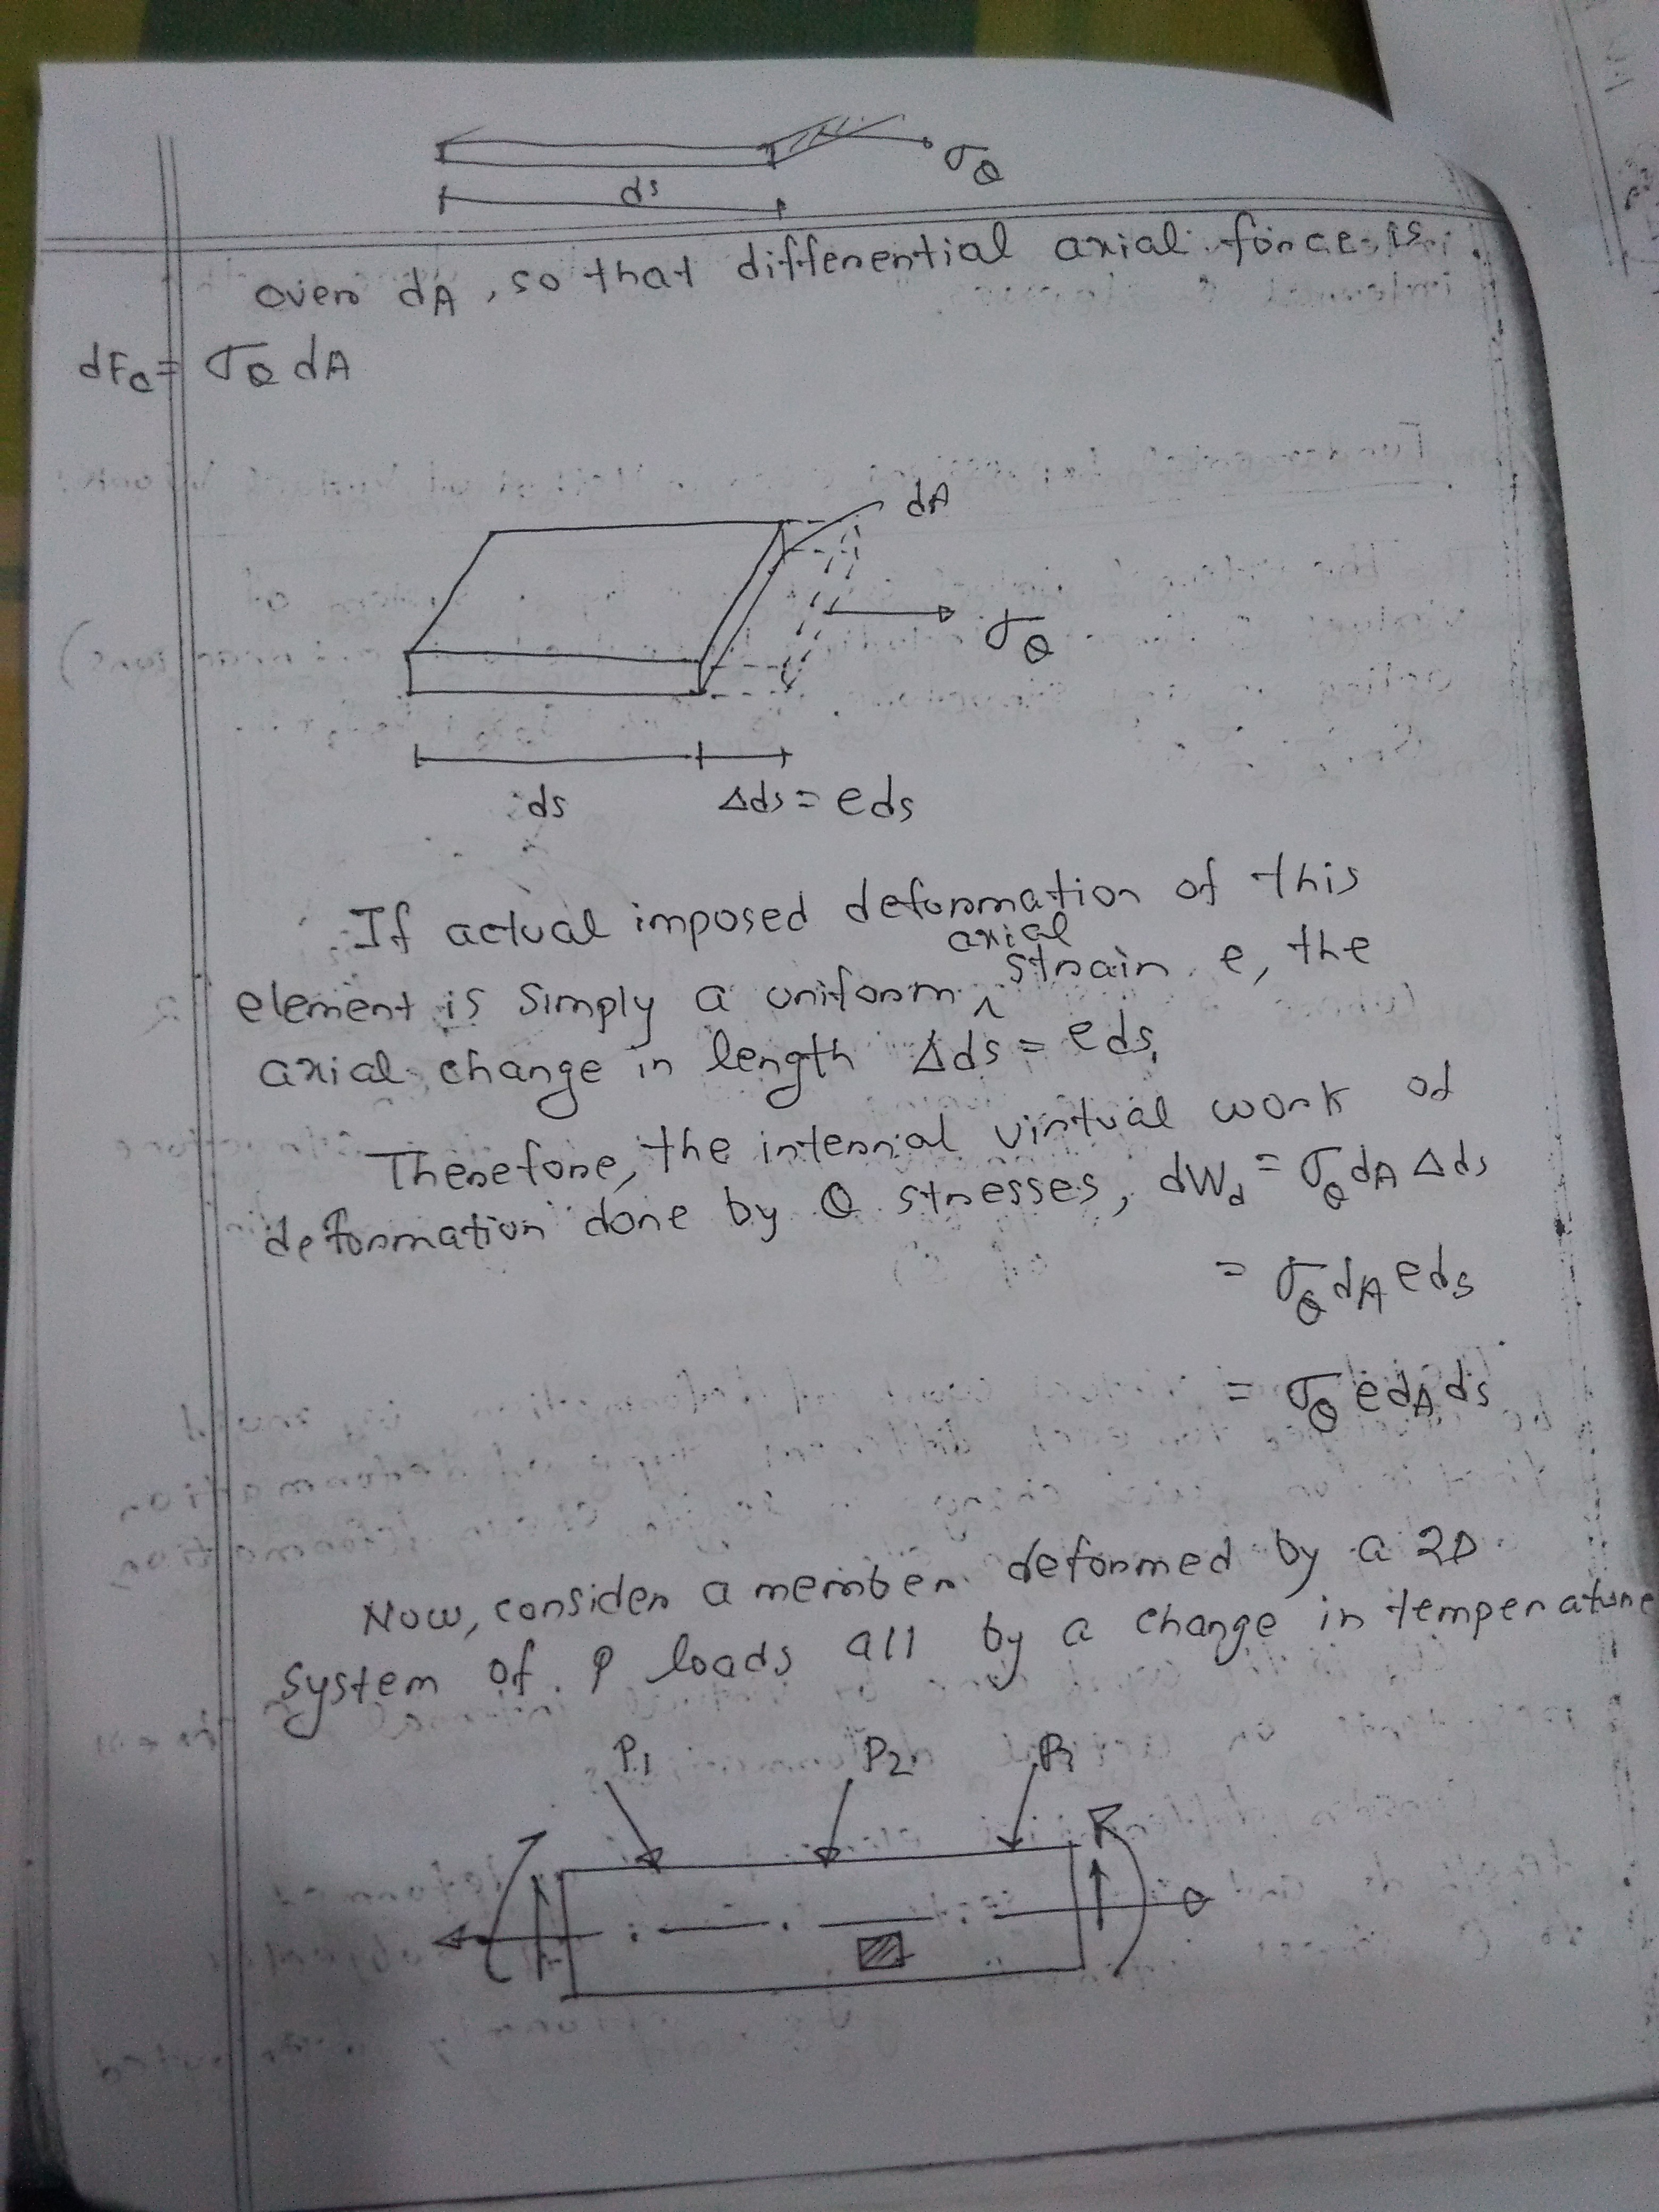 σQ
ds
over dA, so that differential axial force is
dFQ = σQ dA
dA
σQ
ds Δds = eds
If actual imposed deformation of this
axial
element is simply a uniform ^ strain e, the
axial change in length Δds = eds,
Therefore, the internal virtual work of
deformation done by Q stresses, dWd = σQ dA Δds
= σQ dA eds
= σQ e dA ds
Now, consider a member deformed by a 2D
system of P loads all by a change in temperature
P1 P2